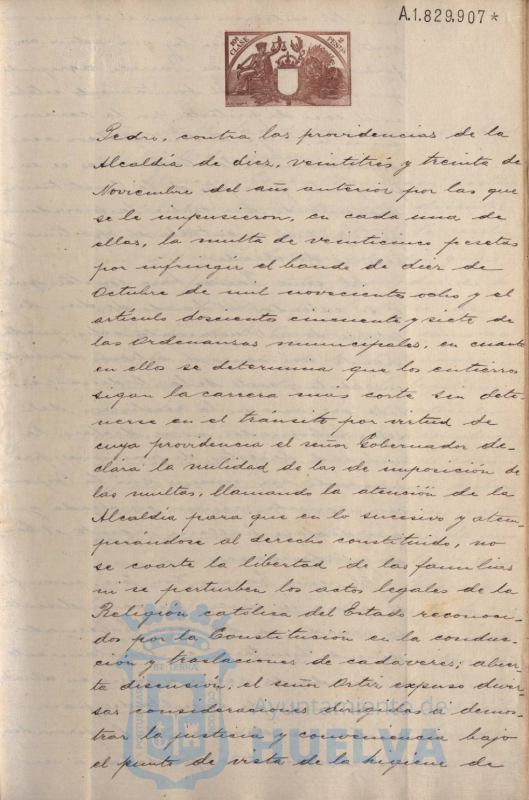 A.1.829.907*
CLASE
Pedro, contra las providencias de la
Alcaldía de diez, veintitrés y treinta de
Noviembre del año anterior por las que
se le impusieron, en cada una de
ellas, la multa de veinticinco pesetas
por infringir el bando de diez de
Octubre de mil novecientos ocho y el
artículo doscientos cincuenta y siete de
las Ordenanzas municipales, en cuanto
en ellos se determina que los entierros
sigan la carrera mas corta sin dete-
nerse en el tránsito por virtud de
cuya providencia el señor Gobernador de-
clara la nulidad de las de imposición de
las multas, llamando la atención de la
Alcaldía para que en lo sucesivo y atem-
perándose al derecho constituido, no
se coarte la libertad de las familias
ni se perturben los actos legales de la
Religión católica del Estado reconoci-
dos por la Constitución en la conduc-
ción y traslaciones de cadáveres; abier-
ta discusión, el señor Ortiz expuso diver-
sas consideraciones dirigidas a demos-
trar la justicia y conveniencia bajo
el punto de vista de la higiene de
Ayuntamiento de
HUELVA